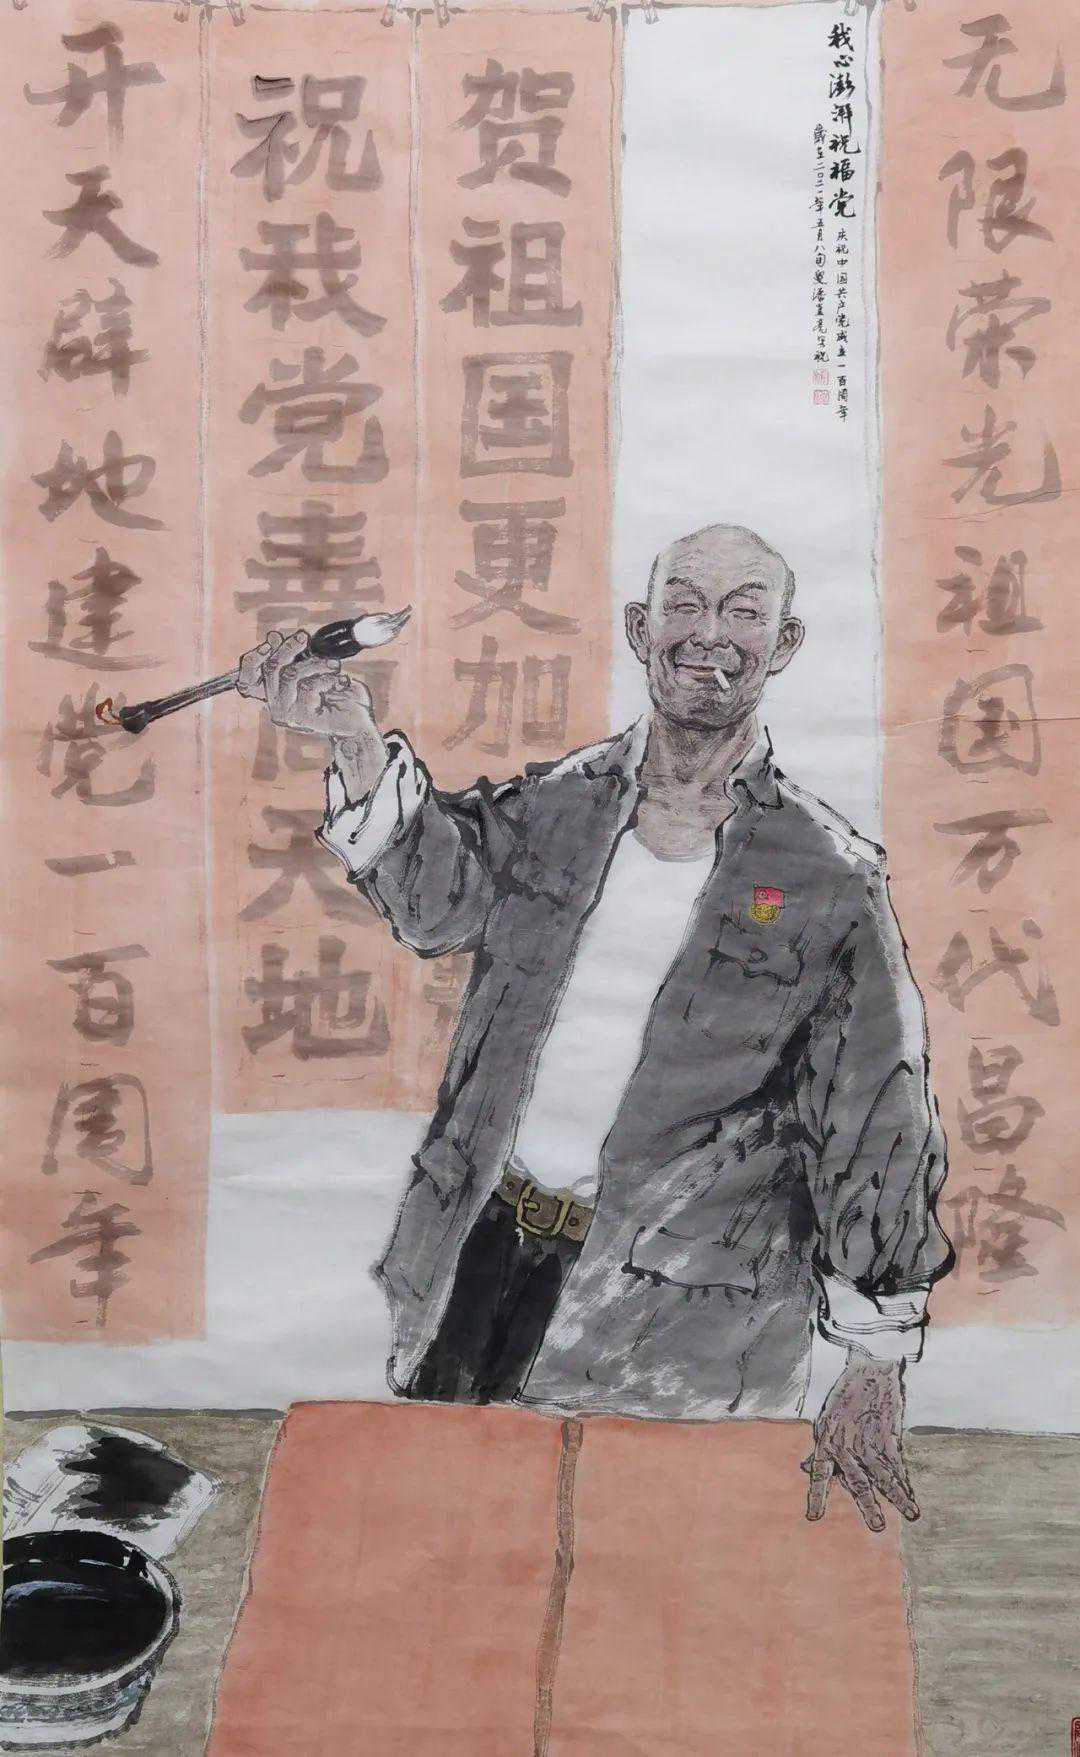 无限荣光祖国万代昌隆
我心澎湃祝福党
庆祝中国共产党成立一百周年
岁在二〇二一年五月八旬叟潘直亮祝
贺祖国更加
祝我党壽同天地
开天辟地建党一百周年